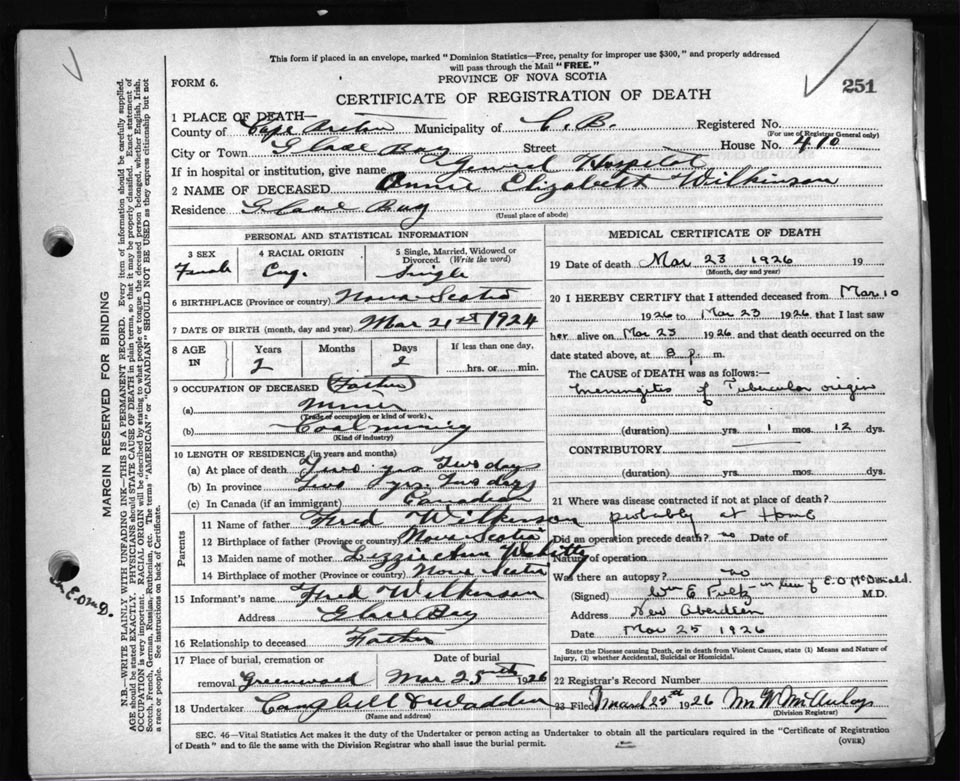 This form if placed in an envelope, marked "Dominion Statistics—Free, penalty for improper use $300," and properly addressed
will pass through the Mail "FREE."
FORM 6.
PROVINCE OF NOVA SCOTIA
251
CERTIFICATE OF REGISTRATION OF DEATH
1 PLACE OF DEATH—
County of Cape Breton Municipality of C. B. Registered No.
(For use of Registrar General only)
City or Town Glace Bay Street House No. 410
If in hospital or institution, give name General Hospital
2 NAME OF DECEASED Annie Elizabeth Wilkinson
Residence Glace Bay
(Usual place of abode)
PERSONAL AND STATISTICAL INFORMATION
3 SEX 4 RACIAL ORIGIN 5 Single, Married, Widowed or Divorced. (Write the word)
Female Eng. Single
6 BIRTHPLACE (Province or country) Nova Scotia
7 DATE OF BIRTH (month, day and year) Mar 21st 1924
8 AGE IN Years Months Days If less than one day,
2 2 hrs. or min.
9 OCCUPATION OF DECEASED (Father)
(a) Miner
(Trade of occupation or kind of work)
(b) Coal mining
(Kind of industry)
10 LENGTH OF RESIDENCE (in years and months)
(a) At place of death Two yrs Two days
(b) In province Two yrs. Two days
(c) In Canada (if an immigrant) Canadian
Parents
11 Name of father Fred Wilkinson
12 Birthplace of father (Province or country) Nova Scotia
13 Maiden name of mother Lizzie Ann
14 Birthplace of mother (Province or country) Nova Scotia
15 Informant's name Fred Wilkinson
Address Glace Bay
16 Relationship to deceased Father
17 Place of burial, cremation or removal Greenwood Date of burial Mar 25th 1926
18 Undertaker Campbell & Wadden
(Name and address)
MEDICAL CERTIFICATE OF DEATH
19 Date of death Mar 23 1926 19
(Month, day and year)
20 I HEREBY CERTIFY that I attended deceased from Mar 10
1926 to Mar 23 1926 that I last saw
her alive on Mar 23 1926 and that death occurred on
date stated above, at 8 p. m.
The CAUSE of DEATH was as follows:—
Meningitis of Tubercular origin
(duration) yrs. 1 mos. 12 dys.
CONTRIBUTORY
(duration) yrs. mos. dys.
21 Where was disease contracted if not at place of death?
probably at Home
Did an operation precede death? no Date of
Nature of operation
Was there an autopsy? no
(Signed) Wm E in lieu of E. O McDonald. M.D.
Address New Aberdeen
Date Mar 25 1926
State the Disease causing Death, or in death from Violent Causes, state (1) Means and Nature of
Injury, (2) whether Accidental, Suicidal or Homicidal.
22 Registrar's Record Number
23 Filed March 25th 1926
(Division Registrar)
SEC. 46—Vital Statistics Act makes it the duty of the Undertaker or person acting as Undertaker to obtain all the particulars required in the "Certificate of Registration
of Death" and to file the same with the Division Registrar who shall issue the burial permit. (OVER)
MARGIN RESERVED FOR BINDING
N.B.—WRITE PLAINLY WITH UNFADING INK—THIS IS A PERMANENT RECORD. Every item of information should be carefully supplied.
AGE should be stated EXACTLY. PHYSICIANS should STATE CAUSE OF DEATH in plain terms, so that it may be properly classified. Exact statement of
OCCUPATION is very important. RACIAL ORIGIN will be described by stating to what people or tongue the deceased person belonged, whether English, Irish,
Scotch, French, German, Russian, Ruthenian, etc. The terms "AMERICAN" or "CANADIAN" SHOULD NOT BE USED as they express citizenship but not
a race or people. See instructions on back of Certificate.